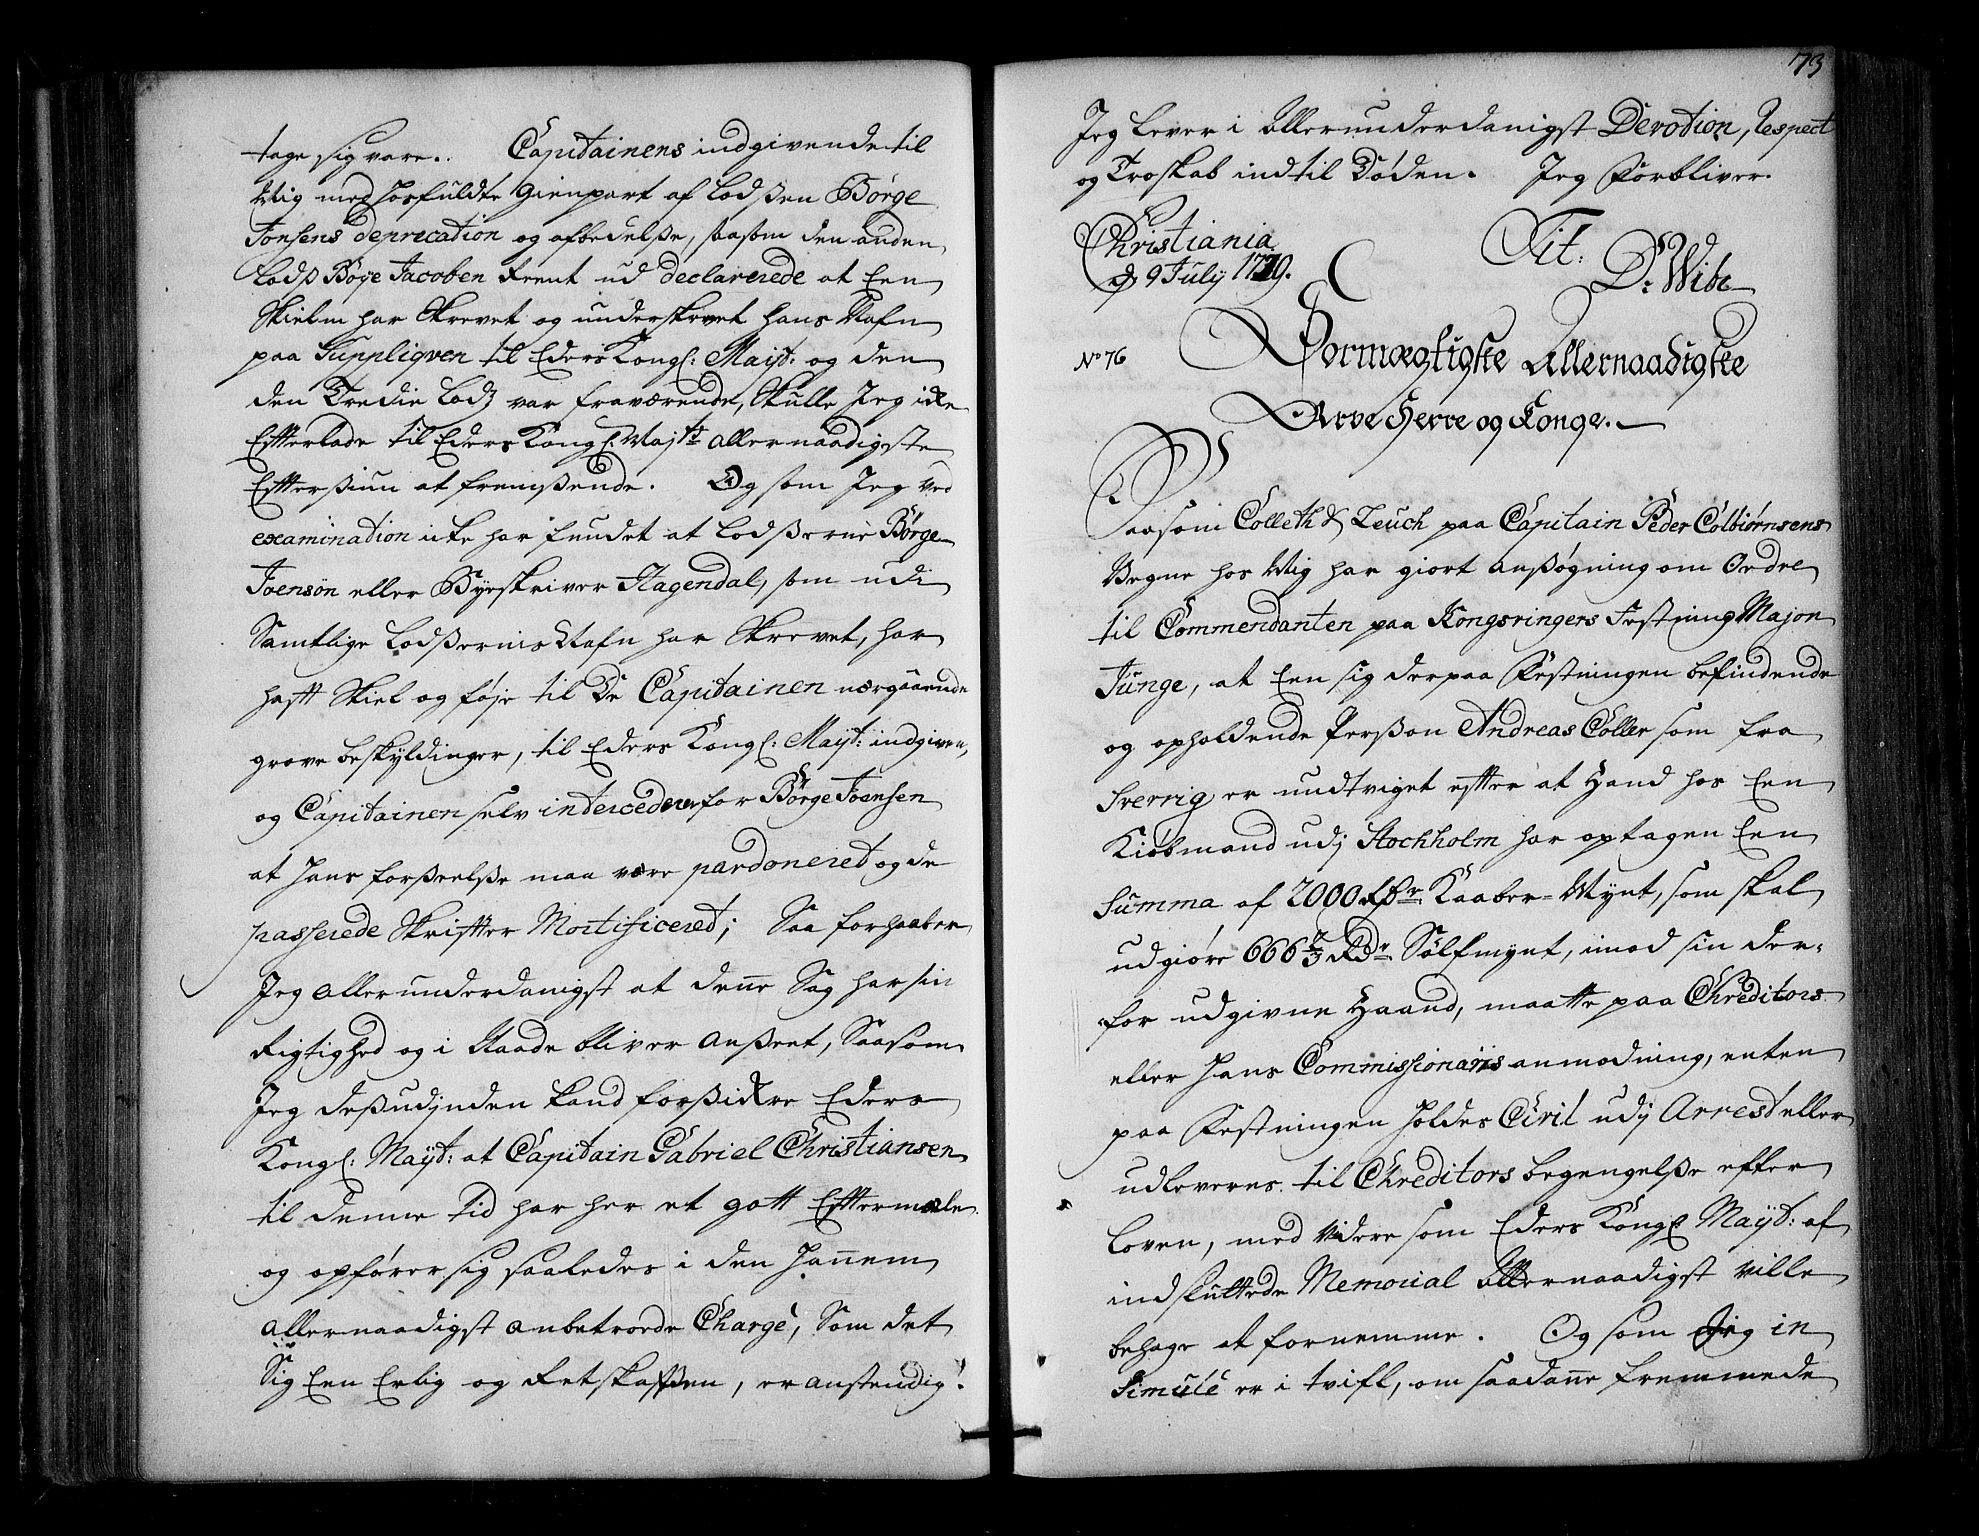 tage sig vare.. Capitainens indgivende til
Mig med hosfuldte Gienpart af Lodsen Børge
Jonsens deprecation og afbedelse, saasom den anden
Lods Boye Jacobsen reent ud declarerede at Een
Skielm har Skrevet og underskrevet hans Nafn
paa Suppliqven til Eders Kongl: Mayt: og den
den Tredie Lods var fraværende, Skulle Jeg icke
Efterlade til Eders Kongl Mayts allernaadigste
Eftersiun at fremsende. Og som Jeg ved
examination icke har fundet at Lodserne Børge
Joensøn eller Byeskriver Hagendal, som udi
Samtlige Lodsernis Nafn har Skrevet, har
haft Skiel og føje til De Capitainen nærgaaende
grove beskyldinger, til Eders Kongl: Mayt: indgiven,
og Capitainen selv intercederer for Børge Joensen
at hans forseelse maa være pardoneret og de
passerede Skrifter Mortificeret; Saa forhaaber
Jeg allerunderdanigst at denne Sag har sin
Rigtighed og i Naade bliver anseet, Saasom
Jeg desudjnden kand forsickre Eders
Kongl: Mayt: at Capitain Gabriel Christiansen
til denne tid har her et gott Eftermæle
og opfører sig saaledes i den hannem
allernaadigst anbetroede Charge, Som det
Sig Een Erlig og Retskaffen, er anstendig!
73
Jeg lever i allerunderdanigst Devotion, Respect
og Troskab indtil Døden. Jeg Forbliver.
Christiania
d 9 July 1729.
Tit:
D: Wibe
No 76
Stormægtigste Allernaadigste
Arve Herre og Konge.
Saasom Colleth & Leuch paa Capitain Peder Colbiørnsens
Vegne hos Mig har giort ansøgning om Ordre
til Commendanten paa Kongsvingers Festning Major
Junge, at Een sig derpaa Festningen befindende
og opholdende Person Andreas Coller som fra
Sverrig er undviget efter at Hand hos Een
Kiøbmand udj Stockholm har optagen Een
Summa af 2000 Rdr Kaaber-Mynt, som skal
udgiøre 666 2/3 Rdr Sølfmynt, imod sin der-
for udgivne Haand, maatte paa Chreditors
eller hans Commissionairs anmodning, enten
paa Festningen holdes Civil udj Arrest eller
udleveres til Chreditors begengelse efter
Loven, med videre som Eders Kongl Mayt: af
indsluttede Memorial allernaadigst ville
behage at fornemme. Og som Jeg in
Simile er i tvifl, om saadanne fremmede